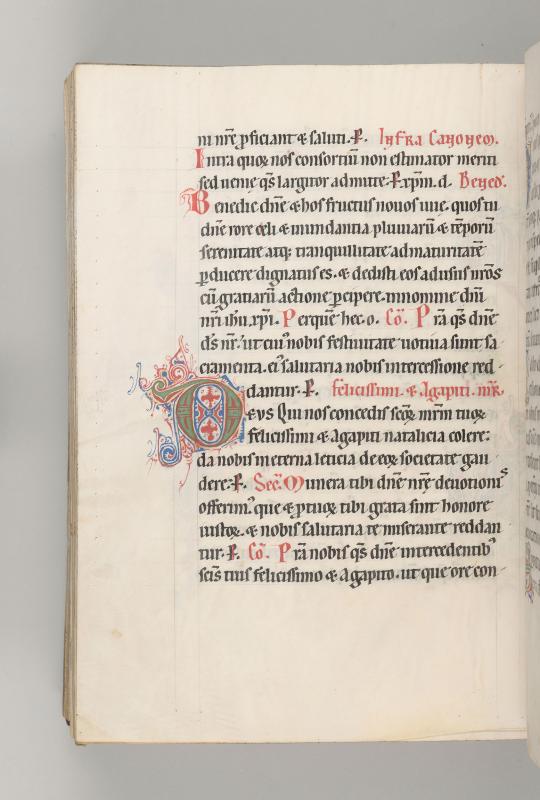 ni nr̄e ꝓficiant & saluti. P. Infra Canonem.
Intra quoꝝ nos consortiū non estimator meriti
sed uenie qs̄ largitor admitte. P. xp̄m. d. Bened'.
Benedic dn̄e & hos fructus nouos uue. quos tu
dn̄e rore celi & inundantia pluuiarū & tēporū
serenitate atq; tranquillitate ad maturitatē
ꝑducere dignatus es. & dedisti eos ad usus nr̄os
cū gratiarū actione ꝑcipere. in nomine dn̄i
nr̄i ih̄u xp̄i. Perquē hec. o. Cō. Prā qs̄ dn̄e
ds̄ nr̄. ut cui' nobis festiuitate uotiua sunt sa
cramenta. ei' salutaria nobis intercessione red
dantur. P. felicissimi. & Agapiti. mr̄.
Deus Qui nos concedis scōꝝ mr̄m tuoꝝ
felicissimi & Agapiti natalicia colere:
da nobis in eterna leticia de eoꝝ societate gau
dere. P. Sec̄. Munera tibi dn̄e nr̄e deuotionis
offerim'. que & ꝓ tuoꝝ tibi grata sint honore
iustoꝝ. & nobis salutaria te miserante reddan
tur. P. Cō. Prā nobis qs̄ dn̄e intercedentib'
scīs tuis felicissimo & Agapito. ut que ore con